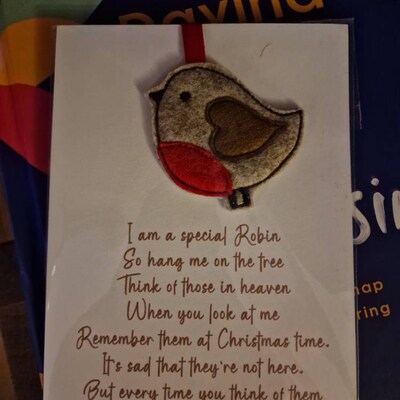 I am a special Robin
So hang me on the tree
Think of those in heaven
When you look at me
Remember them at Christmas time.
It's sad that they're not here.
But every time you think of them